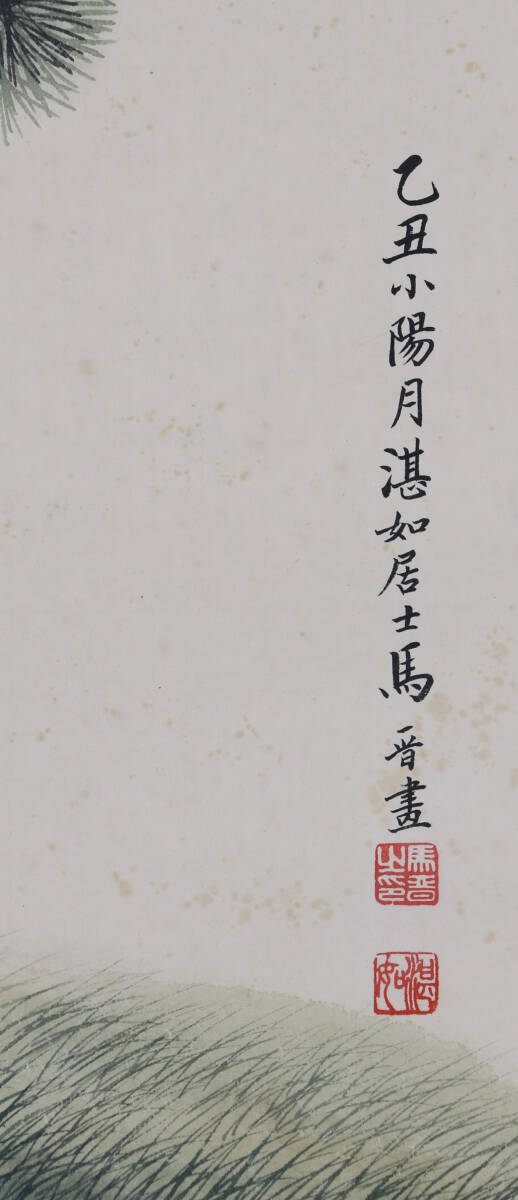 乙丑小陽月湛如居士馬晉畫
馬晉之印
湛如